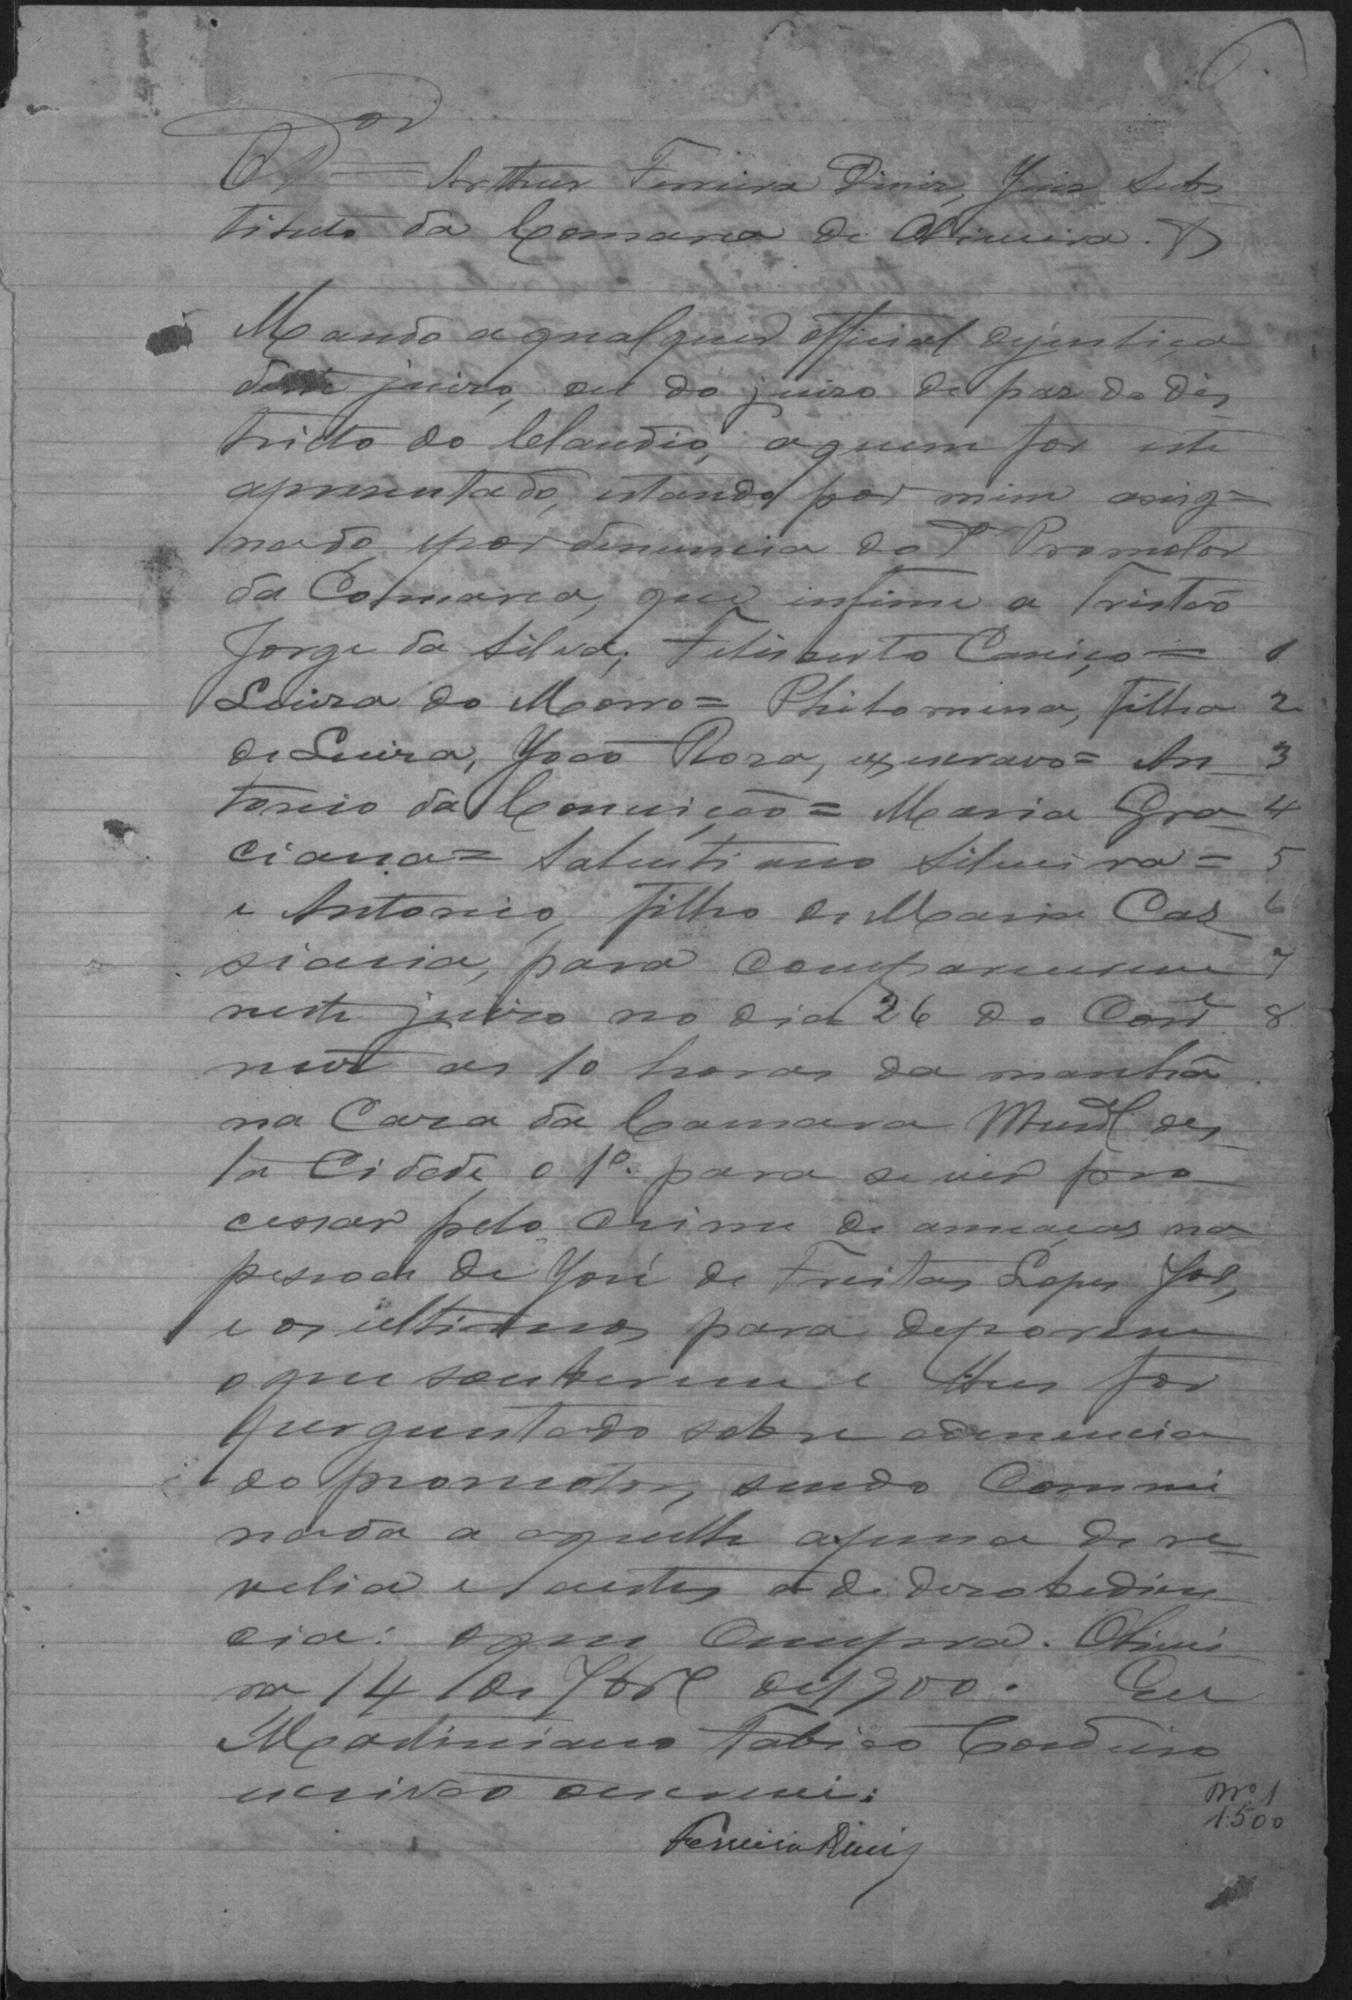 O Dor Arthur Ferreira Diniz, Juiz Subs
tituto da Comarca de Oliveira. &
Mando a qualquer official dejustiça
deste juizo, ou do juizo de paz do dis
tricto do Claudio, aquem for este
apresentado, estando por mim assig=
nado, epor denuncia do Dr Promotor
da Comarca, que intime a Tristão
Jorge da Silva; Felisberto Caniço = 1
Luiza do Morro = Philomena, filha 2
de Luiza, João Roza, ex escravo = An 3
tonio da Conceição = Maria Gra 4
ciana = Salustiano Silveira = 5
e Antonio, filho de Maria Cas 6
siana, para comparecerem 7
neste juizo no dia 26 do Corre 8
nte as 10 horas da manhã
na Caza da Camara Mual des
ta Cidade, o 1º. para se ver pro
cessar pelo crime de ameaças na
pessoa de José de Freitas Lopes Jor,
e os ultimos para deporem
oque souberem e lhes for
perguntado sobre adenuncia
do promotor, sendo Commi
nada a aquelle apena de re=
velia e aestes a de desobedien
cia: oque cumpra. Olivei
ra, 14 de 7brl de1900. Eu
Martiniano Fabião Cordeiro
escrivão oescrevi.
Ferreira Diniz
Nº 1
1.500